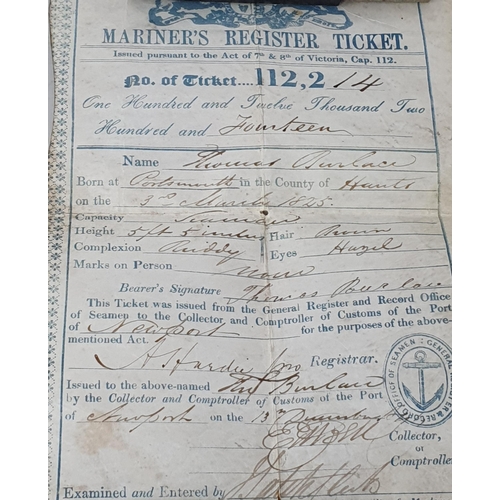 MARINER'S REGISTER TICKET.
Issued pursuant to the Act of 7th & 8th of Victoria, Cap. 112.
No. of Ticket....112,214
One Hundred and Twelve Thousand Two
Hundred and Fourteen
Name Thomas Burlace
Born at Portsmouth in the County of Hants
on the 3rd March 1825
Capacity Seaman
Height 5 ft 5 inches Hair Brown
Complexion Ruddy Eyes Hazel
Marks on Person None
Bearer's Signature Thomas Burlace
This Ticket was issued from the General Register and Record Office
of Seamen to the Collector and Comptroller of Customs of the Port
of Newport for the purposes of the above-
mentioned Act.
A Hardie pro Registrar.
Issued to the above-named Burlace
by the Collector and Comptroller of Customs of the Port
of Newport on the 13
Collector,
or
Comptroller
Examined and Entered by
GENERAL REGISTER & RECORD OFFICE OF SEAMEN